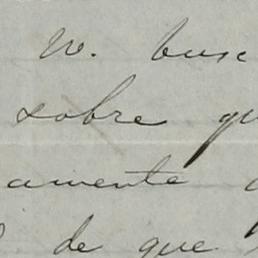 W. busc
sobre qu
amente
de que